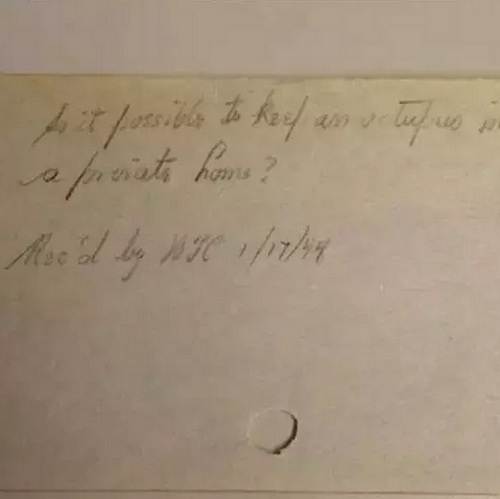 Is it possible to keep an octupus in
a private home?
Rec'd by 1/17/44